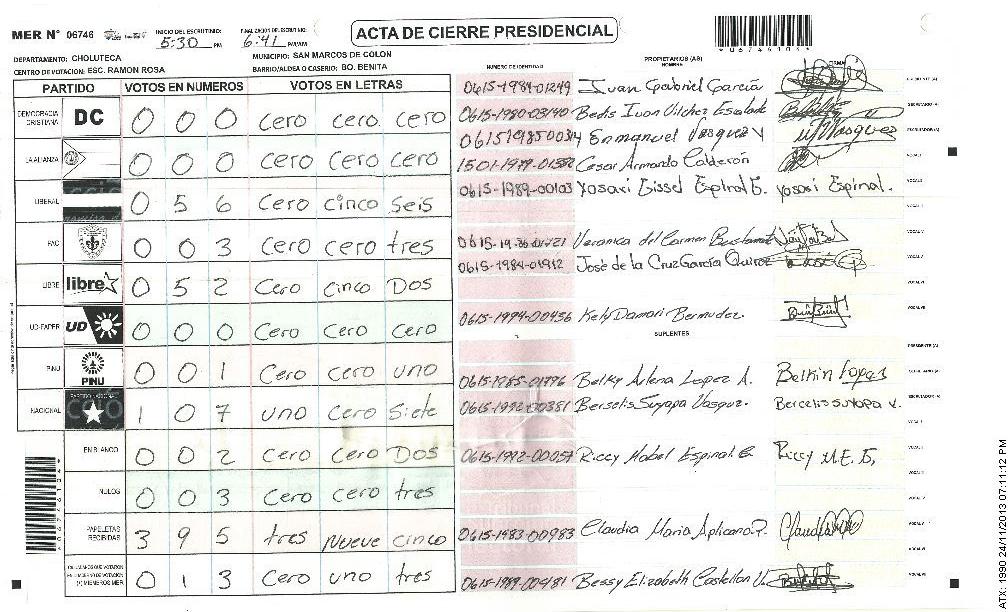 MER N° 06746
INICIO DEL ESCRUTINIO: 5:30 PM
FINALIZACION DEL ESCRUTINIO: 6:41 PM/AM
ACTA DE CIERRE PRESIDENCIAL
06746104
DEPARTAMENTO: CHOLUTECA
MUNICIPIO: SAN MARCOS DE COLON
CENTRO DE VOTACION: ESC. RAMON ROSA
BARRIO/ALDEA O CASERIO: BO. BENITA
PARTIDO VOTOS EN NUMEROS VOTOS EN LETRAS
DEMOCRACIA CRISTIANA DC 0 0 0 cero cero cero
LA ALIANZA 0 0 0 cero cero cero
LIBERAL 0 5 6 cero cinco seis
PAC 0 0 3 cero cero tres
LIBRE libre 0 5 2 cero cinco Dos
UD-FAPER UD 0 0 0 cero cero cero
PINU PINU 0 0 1 cero cero uno
NACIONAL PARTIDO NACIONAL 1 0 7 uno cero siete
EN BLANCO 0 0 2 cero cero Dos
NULOS 0 0 3 cero cero tres
PAPELETAS RECIBIDAS 3 9 5 tres nueve cinco
0 1 3 cero uno tres
NUMERO DE IDENTIDAD PROPIETARIOS (AS) NOMBRE FIRMA
0615-1984-01249 Juan Gabriel García
0615-1980-03140 Bedis Ivan Vilchez
Enmanuel Vasquez
Cesar Armando Calderón
0615-1989-00103 Yosari Gissel Espinal Yosari Espinal.
Veronica del Carmen
0615-1984-01912 José de la Cruz García
0615-1994-00456 Kely Damari Bermudez
SUPLENTES
Belky Arlena Lopez A. Belkin Lopez
0615-1992-00381 Berselis Suyapa Vasquz. Bercelis suyapa v.
0615-1992-00057 Riccy Mabel Espinal Riccy M.E.
0615-1983-00983 Claudia Maria Aplicano
0615-1989-00481 Bessy Elizabeth Castellon
ATX: 1990 24/11/2013 07:11:12 PM